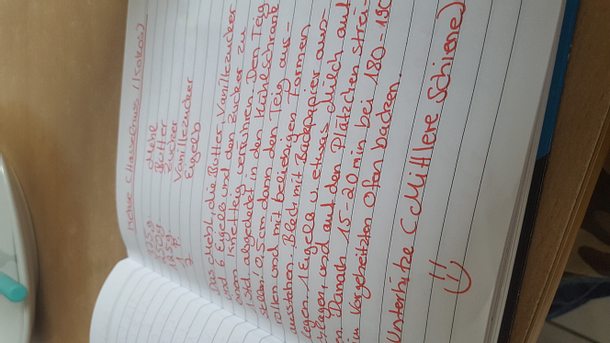 Kekse (Haselnuss / Kokos)
Mehl
Butter
Zucker
Vanillezucker
Eigelb
Das Mehl, die Butter, Vanillezucker
6 Eigelb und den Zucker zu
einen Knetteig verrühren. Den Teig
1 Std abgedeckt in den Kühlschrank
stellen! 0,5 cm dünn den Teig aus-
rollen und mit beliebigen Formen
ausstechen. Blech mit Backpapier aus-
legen. 1 Eigelb u. etwas Milch auf
und auf den Plätzchen strei-
Danach 15-20 min bei 180-190
im Vorgeheizten Ofen backen.
Unterhitze (Mittlere Schiene)